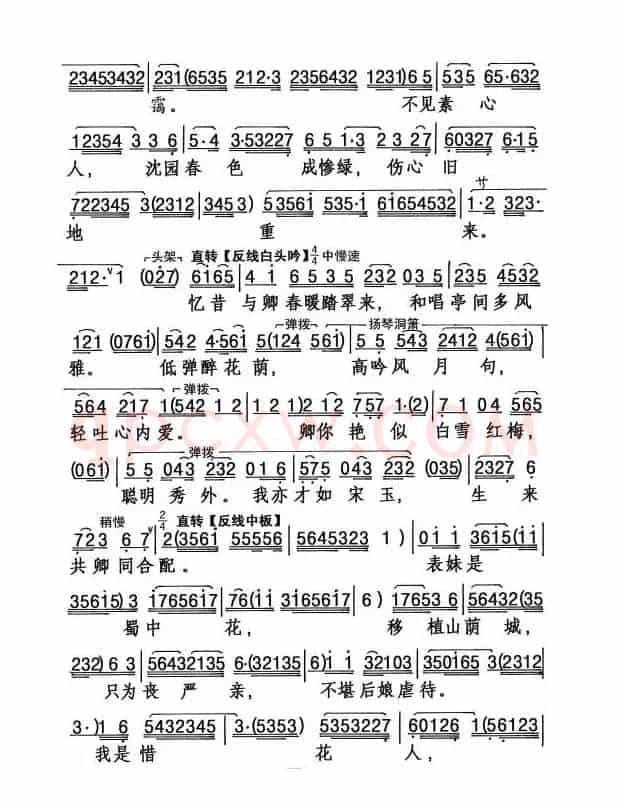 23453432 231(6535 212·3 2356432 1231)6 5 535 65·632
霭。 不见素心
12354 3 3 6 5·4 3·53227 6 5 1·3 2 3 2 7 60327 6·15
人，沈园春色 成惨绿，伤心旧
722345 3(2312 3453) 53561 535·1 61654532 1·2 323·
地 重 来。
头架 直转【反线白头吟】4/4 中慢速
212·1 (027) 6165 4 1 6 5 3 5 232 03 5 235 4532
忆昔 与卿春暖踏翠来，和唱亭间多风
弹拨 扬琴洞箫
121 (0761) 542 4·561 5(124 561) 5 5 543 2412 4(561)
雅。 低弹醉花荫， 高吟风月句，
弹拨
564 217 1(542 12 1201) 2 12 757 1·(2) 7 1 04 565
轻吐心内爱。 卿你艳似 白雪红梅，
弹拨
(061) 5 5 043 232 016 575 043 232 (035) 2327 6
聪明秀外。我亦才如宋玉， 生来
稍慢 2/4 直转【反线中板】
7 2 3 6 7 2(3561 55556 5645323 1) 0 1 1 3615(11
共卿同合配。 表妹是
35615)3 1765617 76(11 3165617 6) 17653 6 56432(35
蜀中 花， 移 植山荫城，
232)6 3 56432135 6·(32135 6)1 1 32103 350165 3(2312
只为丧 严 亲， 不堪后娘虐待。
3·)1 6 5432345 3·(5353) 5353227 60126 1(56123
我是惜 花 人，